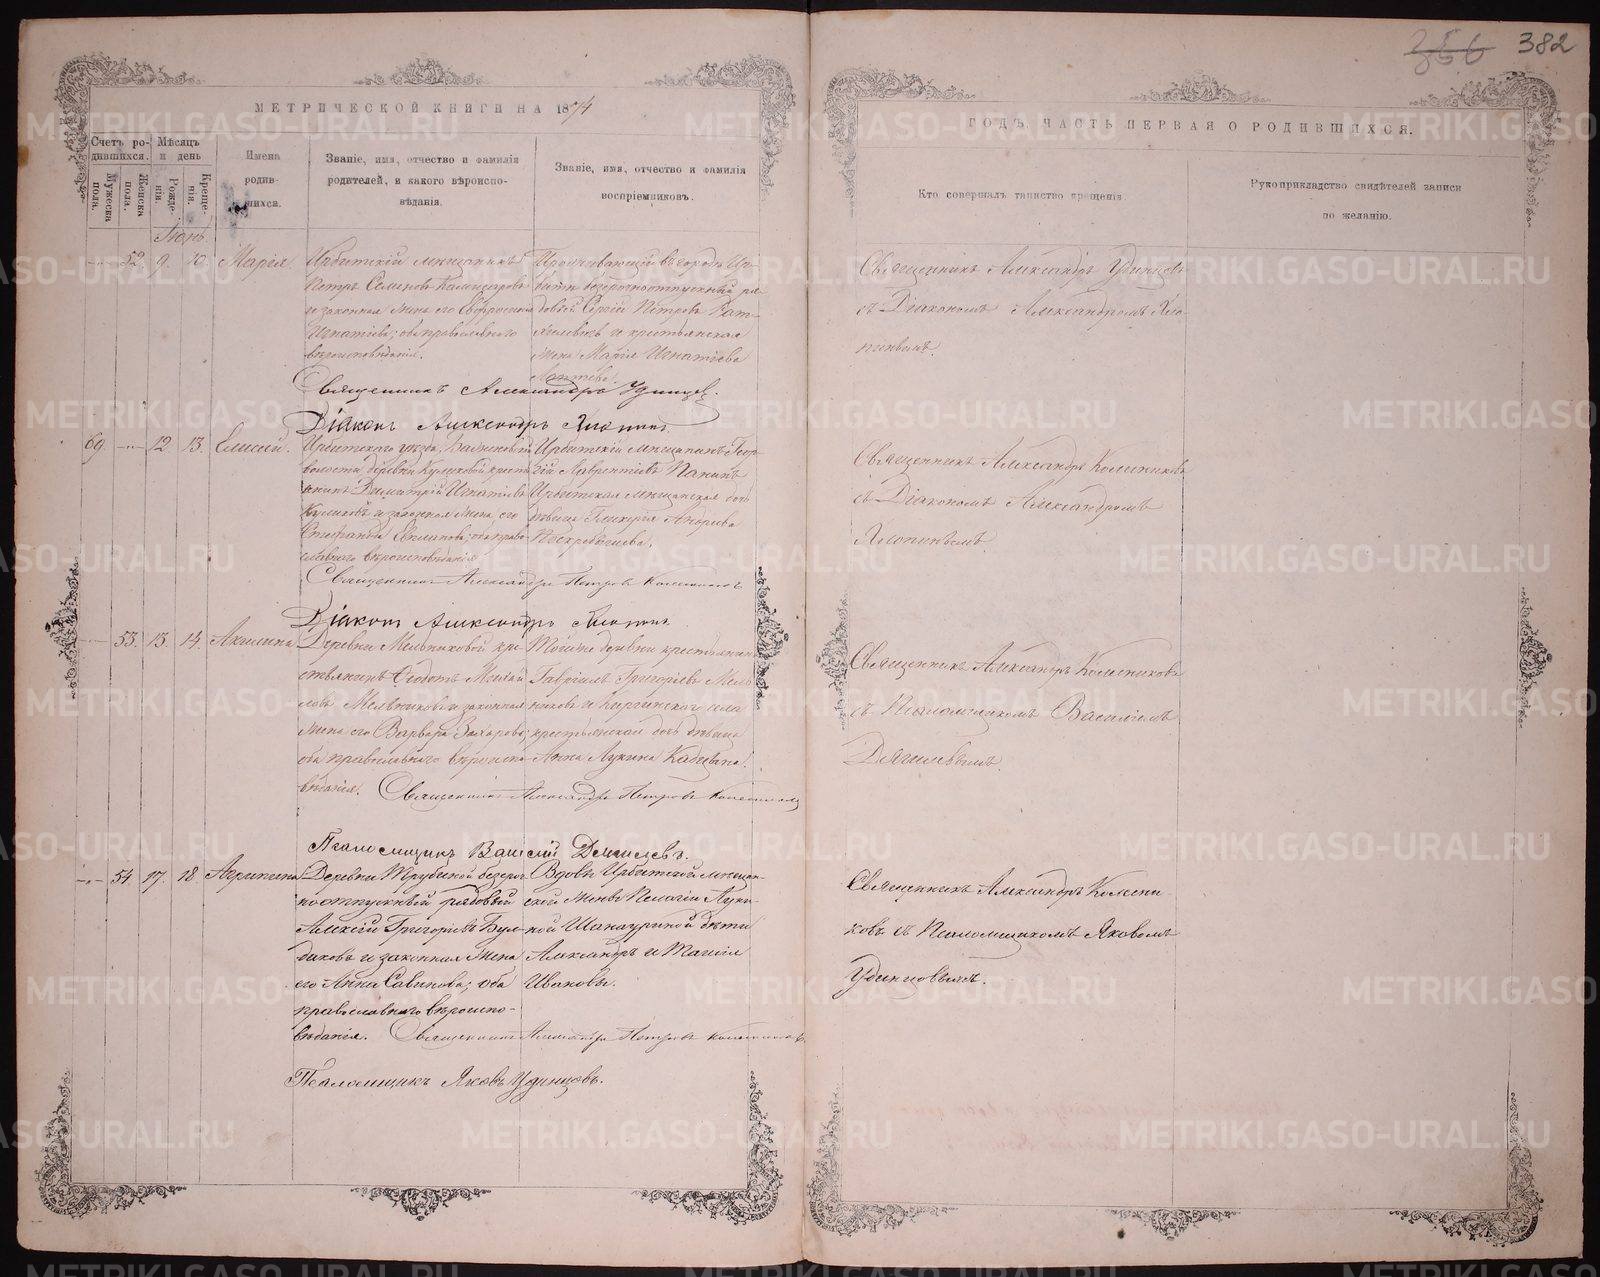 356 382
МЕТРИЧЕСКОЙ КНИГИ НА 1874
ГОДЪ, ЧАСТЬ ПЕРВАЯ О РОДИВШИХСЯ.
Счетъ родившихся.
Мужеска пола.
Женска пола.
Мѣсяцъ и день
Рожденія.
Крещенія.
Имена родившихся.
Званіе, имя, отчество и фамилія
родителей, и какого вѣроиспо-
вѣданія.
Званіе, имя, отчество и фамилія
воспріемниковъ.
Кто совершалъ таинство крещенія
Рукоприкладство свидѣтелей записи
по желанію.
Іюнь.
52. 9. 10. Марія
Ирбитскій мѣщанинъ
Петръ Семеновъ
и законная жена его Евфросинія
Игнатіева; оба православнаго
вѣроисповѣданія.
Проживающій въ городѣ Ир-
битѣ безсрочноотпускный ря-
довой Сергій Петровъ
и крестьянская
жена Марія Игнатіева
Священникъ Александръ Удинцевъ
съ Діакономъ Александромъ Хло-
пинымъ.
Священникъ Александръ Удинцевъ.
Діаконъ Александръ Хлопинъ.
69. 12. 13. Елисей.
Ирбитскаго уѣзда,
волости деревни Куликовой кресть-
янинъ Димитрій Игнатіевъ
Куликовъ и законная жена его
оба право-
славнаго вѣроисповѣданія
Ирбитскій мѣщанинъ Геор-
гій Лаврентіевъ Панинъ
Ирбитская мѣщанская доч
дѣвица Гликерія Андреева
Поскребышева.
Священникъ Александръ Колесниковъ
съ Діакономъ Александромъ
Хлопинымъ.
Священникъ Александръ Петровъ Колесниковъ
Діаконъ Александръ Хлопинъ
53. 13. 14. Акилина
Деревни Мельниковой кре-
стьянинъ Ѳедотъ Михай
ловъ Мельниковъ и законная
жена его Варвара Захарова;
оба православнаго вѣроиспо-
вѣданія.
Тойже деревни крестьянин
Гавріилъ Григорьевъ Мель-
никовъ и Киргинскаго села
крестьянская дочь дѣвица
Анна Лукина
Священникъ Александръ Колесниковъ
съ Псаломщикомъ Василіемъ
Дягилевымъ.
Священникъ Александръ Петровъ Колесниковъ
Псаломщикъ Василій Дягилевъ.
54. 17. 18. Агрипина
Деревни Трубиной безсроч
ноотпускный рядовый
Алексій Григорьевъ Бул-
даковъ и законная жена
его Анна Савинова; оба
православнаго вѣроиспо-
вѣданія.
Вдовы Ирбитской мѣщан-
ской жены Пелагіи Луки-
ной дѣти
Александръ и Таисія
Ивановы.
Священникъ Александръ Колесни-
ковъ съ Псаломщикомъ Яковомъ
Удинцовымъ.
Священникъ Александръ Петровъ Колесниковъ
Псаломщикъ Яковъ Удинцовъ.
METRIKI.GASO-URAL.RU